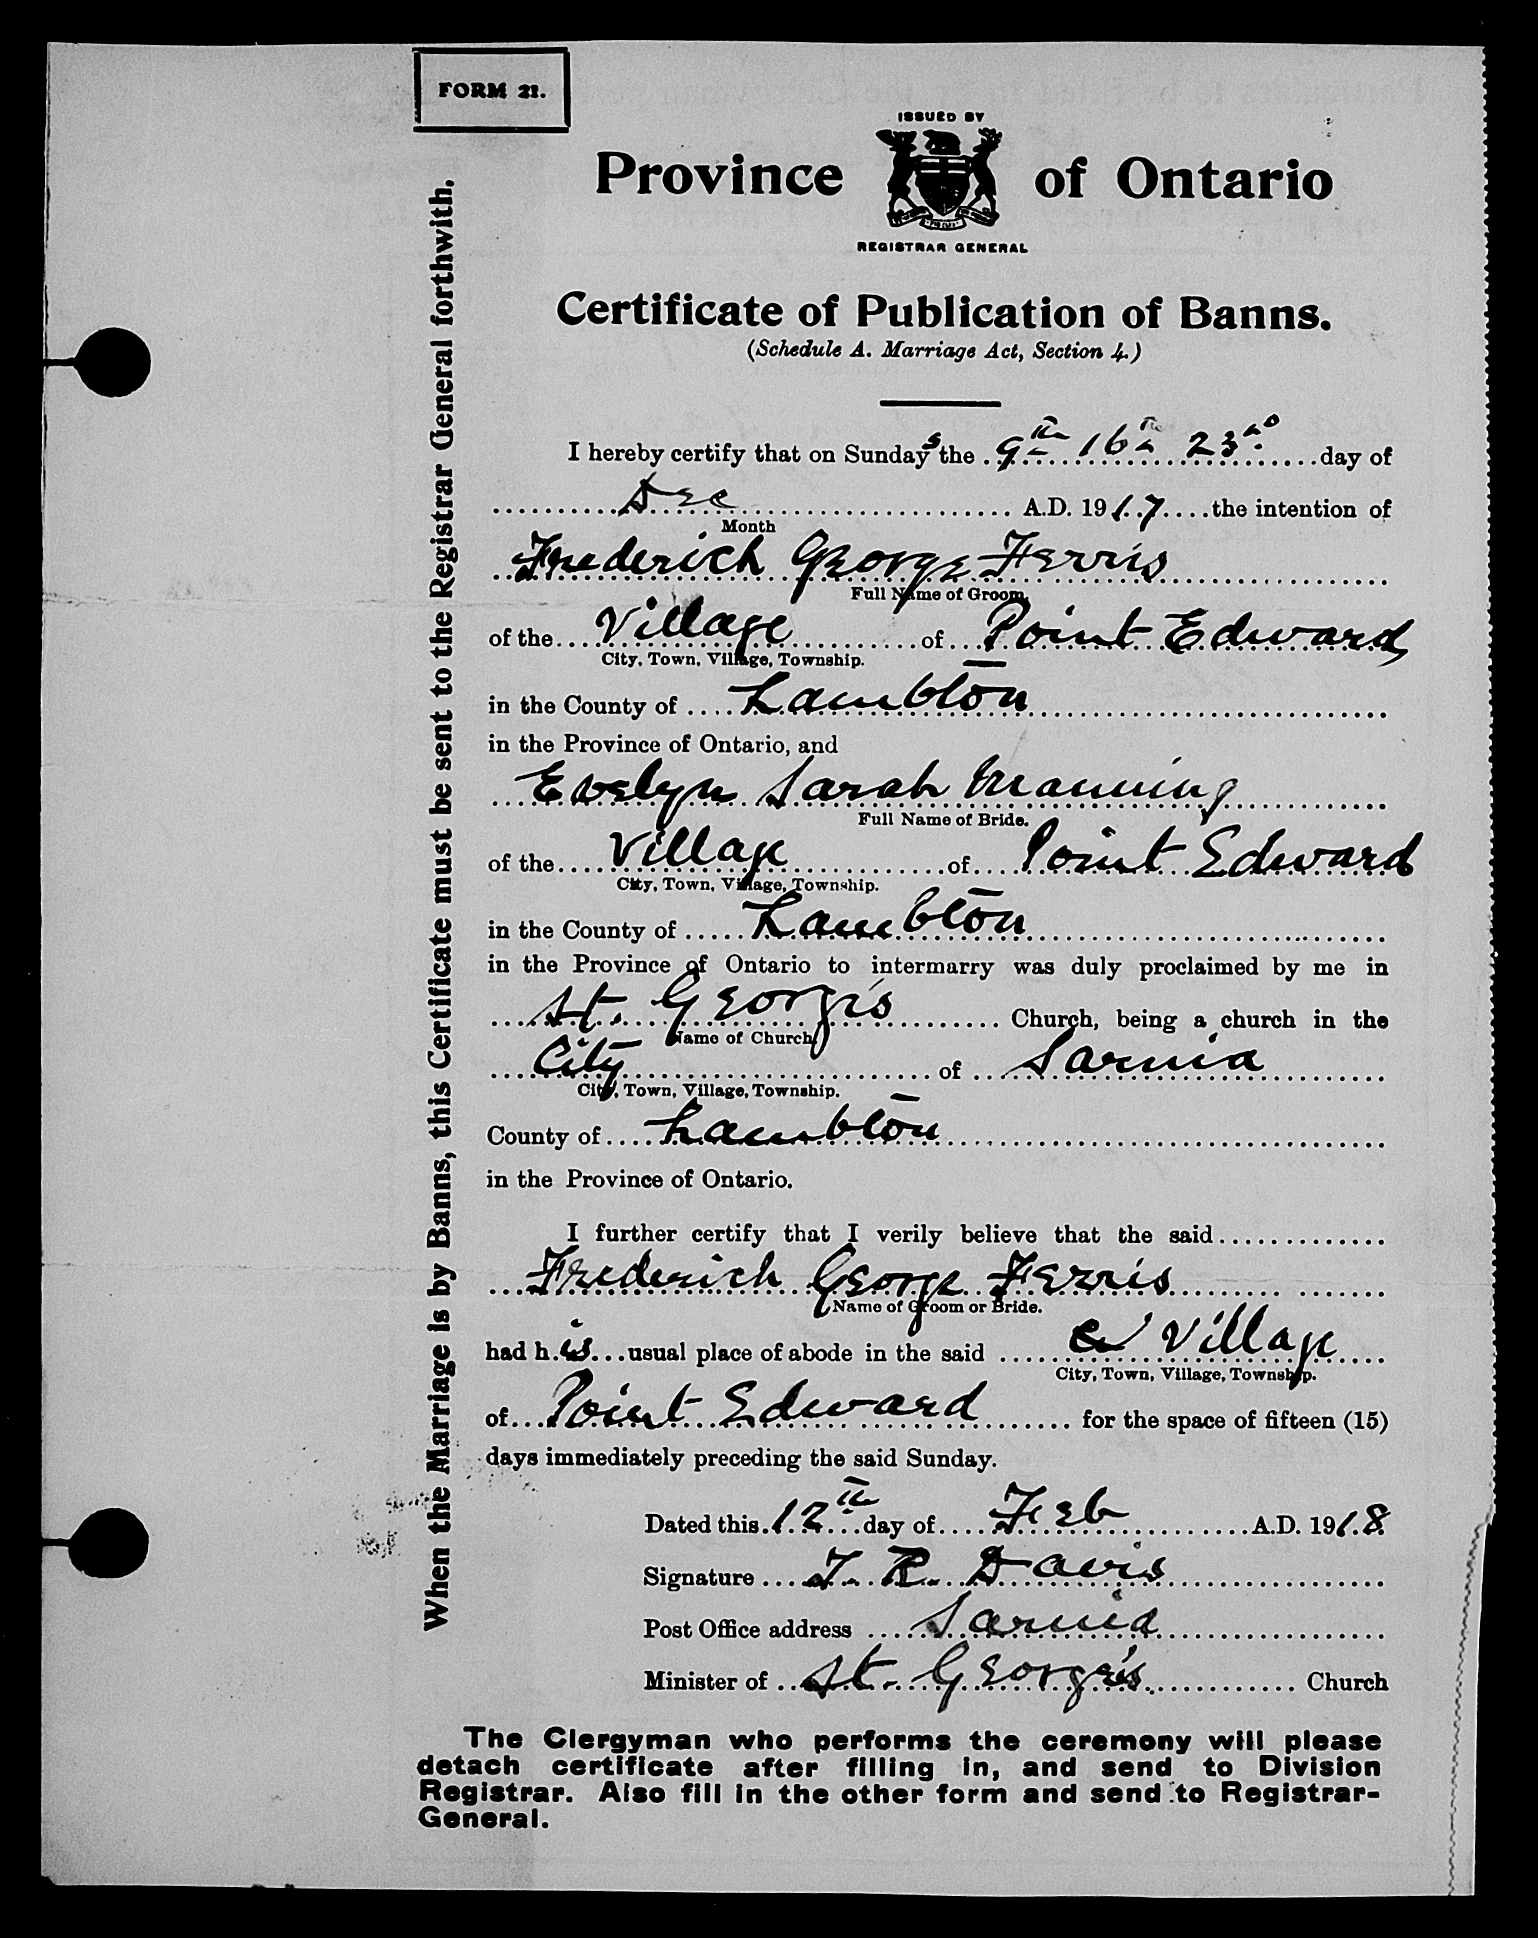 FORM 21.
ISSUED BY
Province of Ontario
REGISTRAR GENERAL
Certificate of Publication of Banns.
(Schedule A. Marriage Act, Section 4.)
When the Marriage is by Banns, this Certificate must be sent to the Registrar General forthwith.
I hereby certify that on Sundays the 9th 16th 23rd day of
Dec A.D. 1917 the intention of
Month
Frederich George Ferris
Full Name of Groom.
of the Village of Point Edward
City, Town, Village, Township.
in the County of Lambton
in the Province of Ontario, and
Evelyn Sarah Manning
Full Name of Bride.
of the Village of Point Edward
City, Town, Village, Township.
in the County of Lambton
in the Province of Ontario to intermarry was duly proclaimed by me in
St. George's Church, being a church in the
Name of Church
City of Sarnia
City, Town, Village, Township.
County of Lambton
in the Province of Ontario.
I further certify that I verily believe that the said
Frederich George Ferris
Name of Groom or Bride.
had his usual place of abode in the said Village
City, Town, Village, Township.
of Point Edward for the space of fifteen (15)
days immediately preceding the said Sunday.
Dated this 12th day of Feb A.D. 1918
Signature T. R. Davis
Post Office address Sarnia
Minister of St. George's Church
The Clergyman who performs the ceremony will please
detach certificate after filling in, and send to Division
Registrar. Also fill in the other form and send to Registrar-
General.